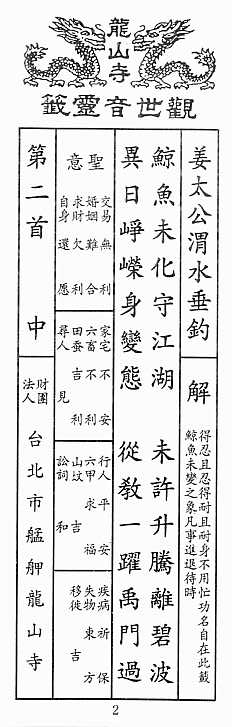 龍山寺
觀世音靈籤
姜太公渭水垂釣
解
得忍且忍得耐且耐身不用忙功名自在此籤
鯨魚未變之象凡事進退待時
鯨魚未化守江湖 未許升騰離碧波
異日崢嶸身變態 從教一躍禹門過
聖意
交易無利
婚姻難合
求財欠利
自身還愿
家宅不安
六畜不利
田蚕吉利
尋人見
行人平安
六甲求福
山墳吉
訟詞和
疾病祈保
失物東方
移徙吉
第二首 中
財團
法人
台北市艋舺龍山寺
2